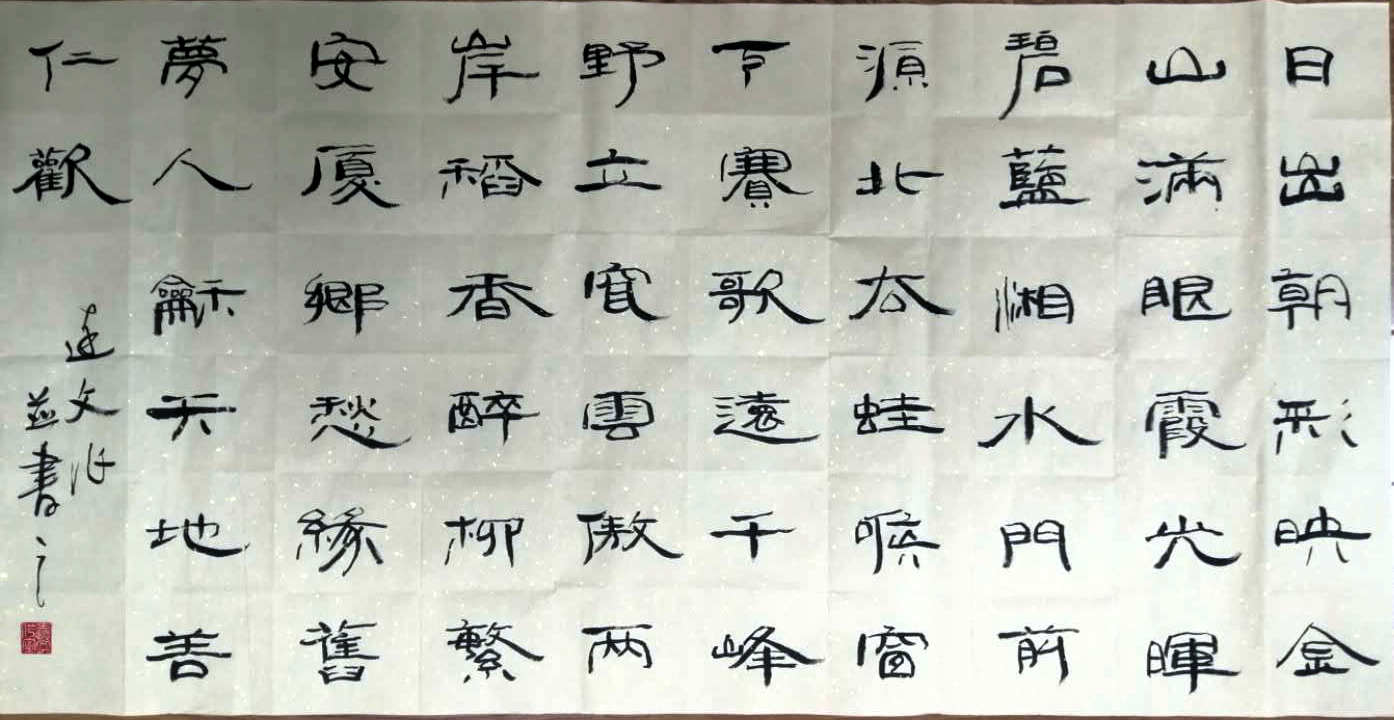 日出朝彩映金
山滿眼霞光暉
碧藍湘水門前
源北去蛙喉窗
下賽歌遠千峰
野立雲傲两
岸稻香醉柳繁
安厦鄉愁緣舊
夢人龢天地善
仁歡
文
並書之